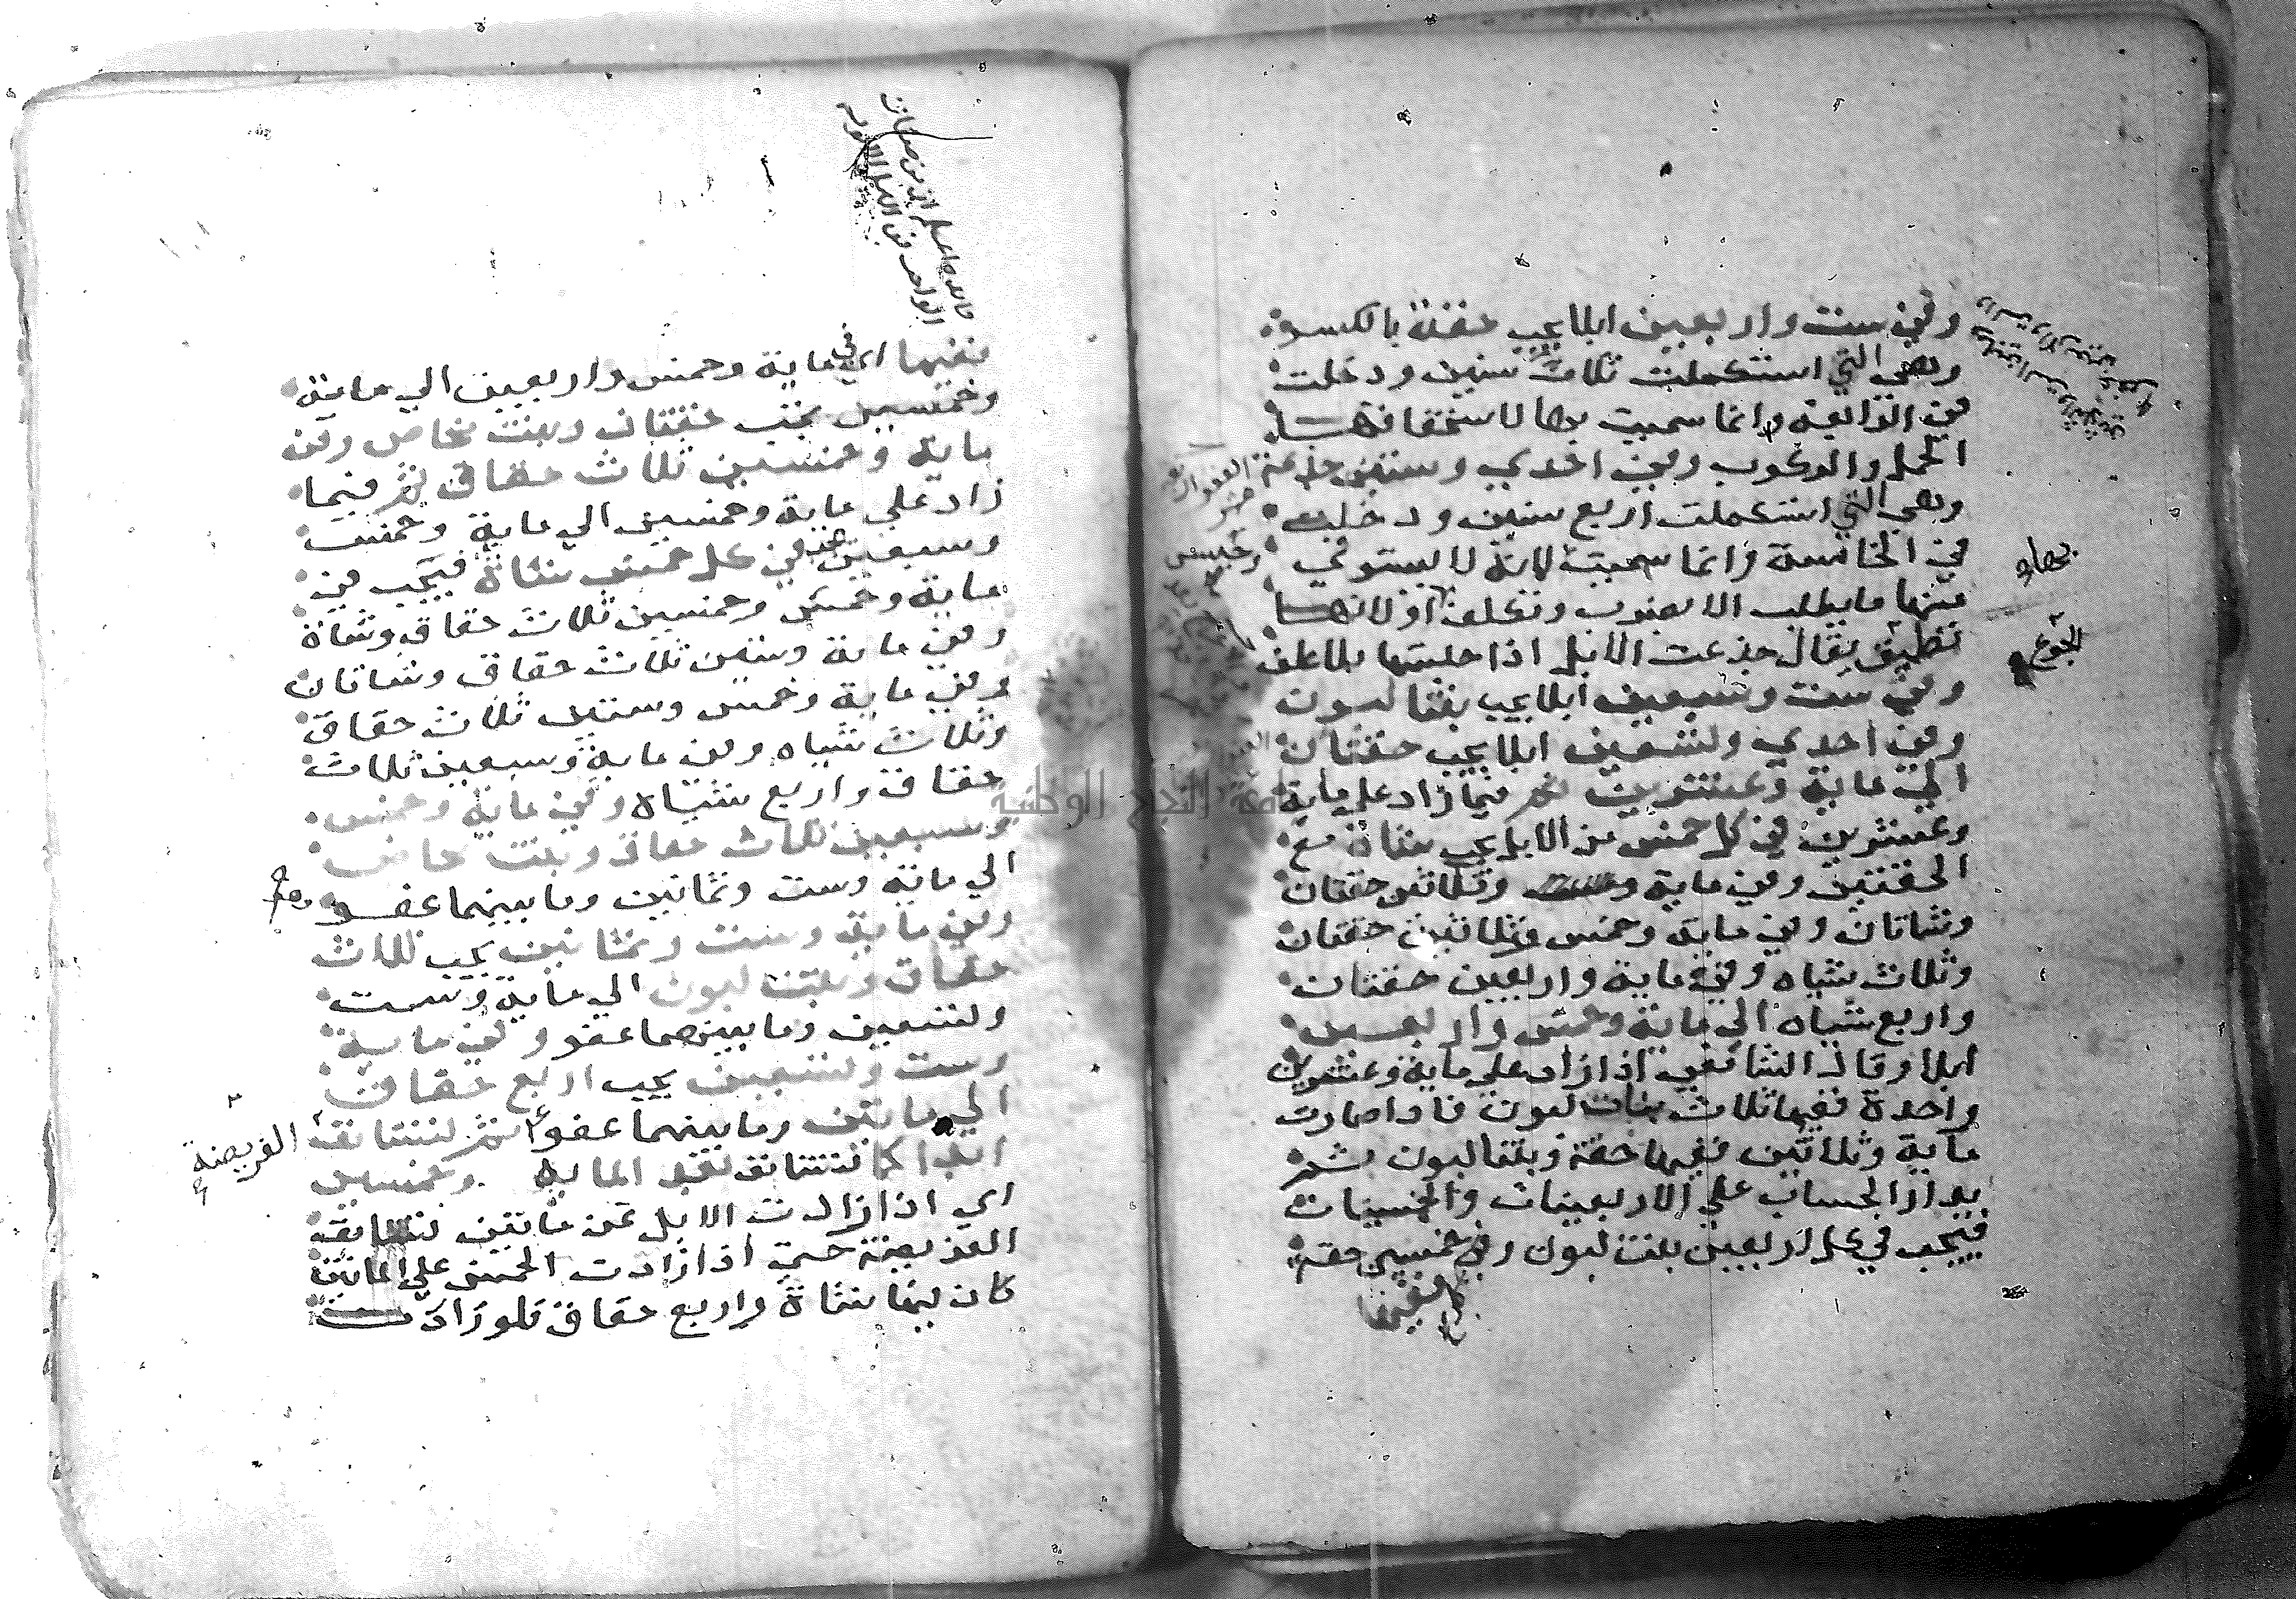 وفي ست واربعين ابلا يجب حقة بالكسر
وهي التي استكملت ثلاث سنين ودخلت
في الرابعة وانما سميت بها لاستحقاقها
الحمل والركوب وفي احدي وستين جذعة
وهي التي استكملت اربع سنين ودخلت
في الخامسة وانما سميت لانه لا يستوفي
منها ما يطلب الا بضرب وتكلف
يقال جذعت الابل اذا حبستها بلا علف
وفي ست وسبعين ابلا يجب بنتا لبون
وفي احدي وتسعين ابلا يجب حقتان
الي ماية وعشرين ثم فيما زاد علي ماية
وعشرين في كل خمس من الابل يجب شاة مع
الحقتين وفي ماية وثلاثين حقتان
وشاتان وفي ماية وخمس وثلاثين حقتان
وثلاث شياه وفي ماية واربعين حقتان
واربع شياه الي ماية وخمس واربعين
ابلا وقال الشافعي اذا زاد علي ماية وعشرين
واحدة ففيها ثلاث بنات لبون فاذا صارت
ماية وثلاثين ففيها حقة وبنتا لبون ثم
يدار الحساب علي الاربعينات والخمسينات
فيجب في كل اربعين بنت لبون وفي خمسين حقة
ففيها
الجوع
ففيها اي في ماية وخمس واربعين الي ماية
وخمسين يجب حقتان وبنت مخاض وفي
ماية وخمسين ثلاث حقاق ثم فيما
زاد علي ماية وخمسين الي ماية وخمس
وسبعين في كل خمس شاة فيجب في
ماية وخمس وخمسين ثلاث حقاق وشاة
وفي ماية وستين ثلاث حقاق وشاتان
وفي ماية وخمس وستين ثلاث حقاق
وثلاث شياه وفي ماية وسبعين ثلاث
حقاق واربع شياه وفي ماية وخمس
وسبعين ثلاث حقاق وبنت مخاض
الي ماية وست وثمانين وما بينهما عفو
وفي ماية وست وثمانين يجب ثلاث
حقاق وبنت لبون الي ماية وست
وتسعين وما بينهما عفو وفي ماية
وست وتسعين يجب اربع حقاق
الي مايتين وما بينهما عفو ثم تستانف
ابدا كما تستانف بعد الماية وخمسين
اي اذا زادت الابل عن مايتين تستانف
الفريضة حتي اذا زادت الخمس علي المايتين
كان فيها شاة واربع حقاق فلو زادت
الفريضة
جامعة النجاح الوطنية